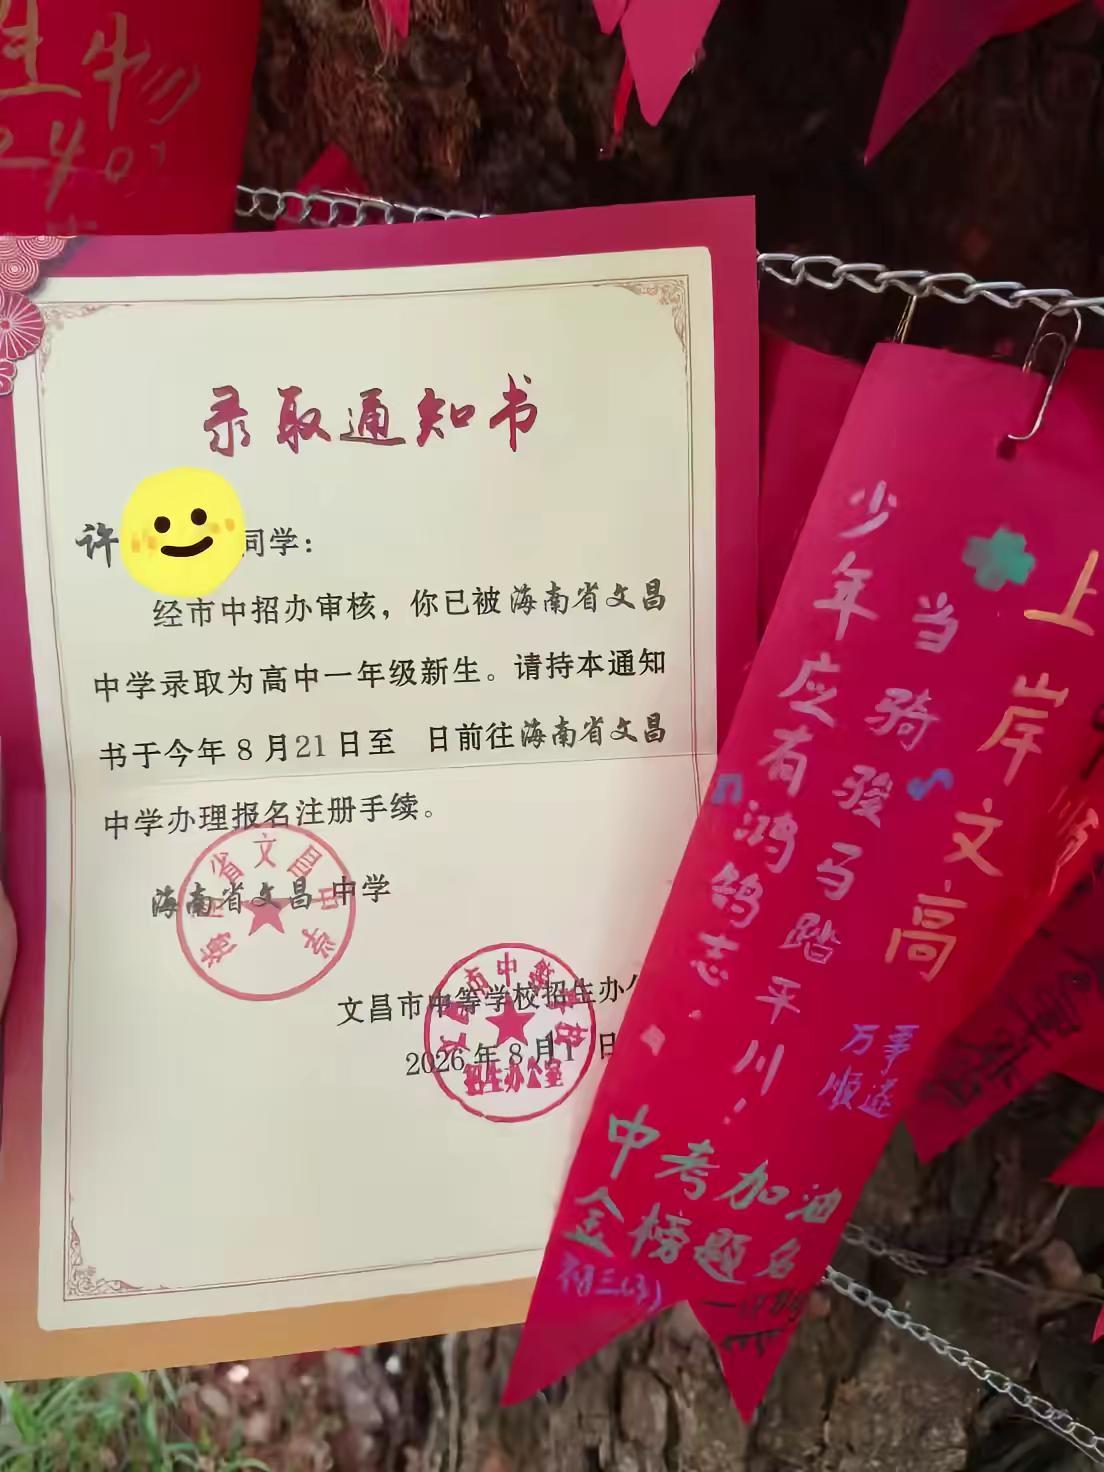 生物
录取通知书
许 同学：
经市中招办审核，你已被海南省文昌
中学录取为高中一年级新生。请持本通知
书于今年8月21日至 日前往海南省文昌
中学办理报名注册手续。
海南省文昌 中学
海南省文昌中学
文昌市中等学校招生办公
2026年8月1 日
文昌市中等学校
招生办公室
上岸文高
当骑骏马踏平川！
少年应有鸿鹄志．
万事
顺遂
中考加油
金榜题名